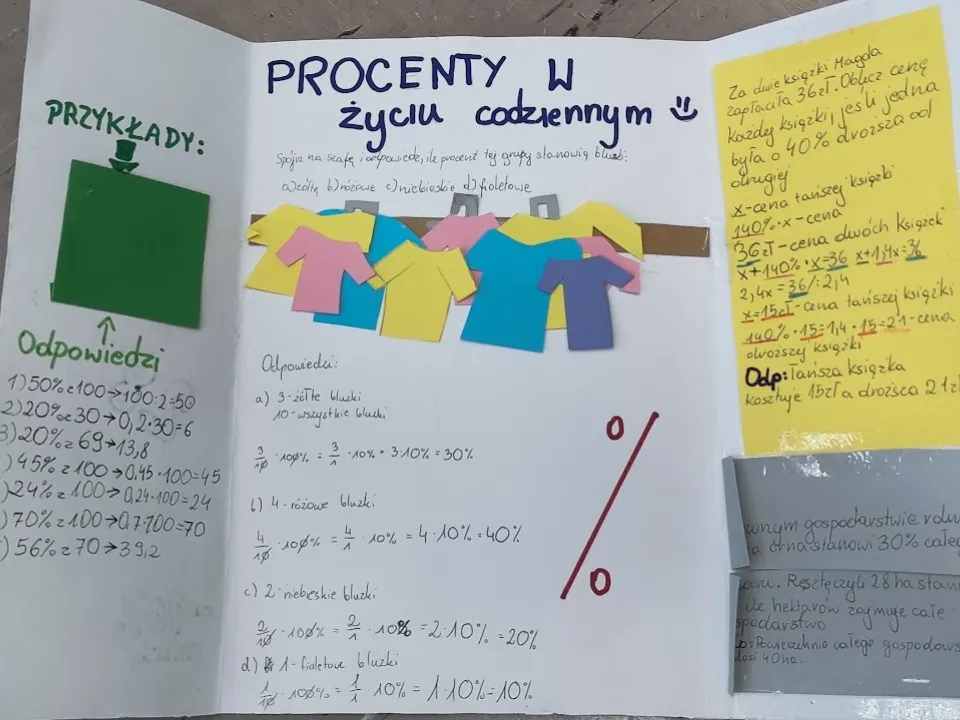 PROCENTY W
życiu codziennym
Spójrz na szafę i odpowiedz, ile procent tej grupy stanowią bluzki:
a) żółte b) różowe c) niebieskie d) fioletowe
PRZYKŁADY:
Odpowiedzi
1) 50% z 100 → 100:2=50
2) 20% z 30 → 0,2·30=6
3) 20% z 69 → 13,8
) 45% z 100 → 0,45·100=45
) 24% z 100 → 0,24·100=24
) 70% z 100 → 0,7·100=70
) 56% z 70 → 39,2
Odpowiedzi:
a) 3-żółte bluzki
10-wszystkie bluzki
3/10 · 100% = 3/1 · 10% = 3·10% = 30%
b) 4-różowe bluzki
4/10 · 100% = 4/1 · 10% = 4·10% = 40%
c) 2-niebieskie bluzki
2/10 · 100% = 2/1 · 10% = 2·10% = 20%
d) 1-fioletowe bluzki
1/10 · 100% = 1/1 · 10% = 1·10% = 10%
%
Za dwie książki Magda
zapłaciła 36zł. Oblicz cenę
każdej książki, jeśli jedna
była o 40% droższa od
drugiej
x-cena tańszej książki
140%·x-cena
36zł-cena dwóch książek
x+140%·x=36 x+1,4x=36
2,4x=36/:2,4
x=15zł-cena tańszej książki
140%·15=1,4·15=21-cena
droższej książki
Odp: Tańsza książka
kosztuje 15zł a droższa 21zł
awnym gospodarstwie
a orna stanowi 30% całeg
Resztę, czyli 28ha stan
ile hektarów zajmuje całe
spodarstwo
Powierzchnia całego gospodars
40ha.